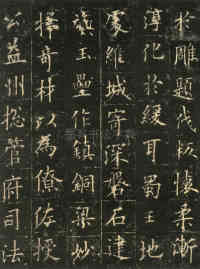 於雕題伐叛懷柔漸
淳化於緩耳蜀王地
處維城寄深磐石建
旟玉壘作鎮銅梁妙
擇奇材以為僚佐授
公益州揔管府司法